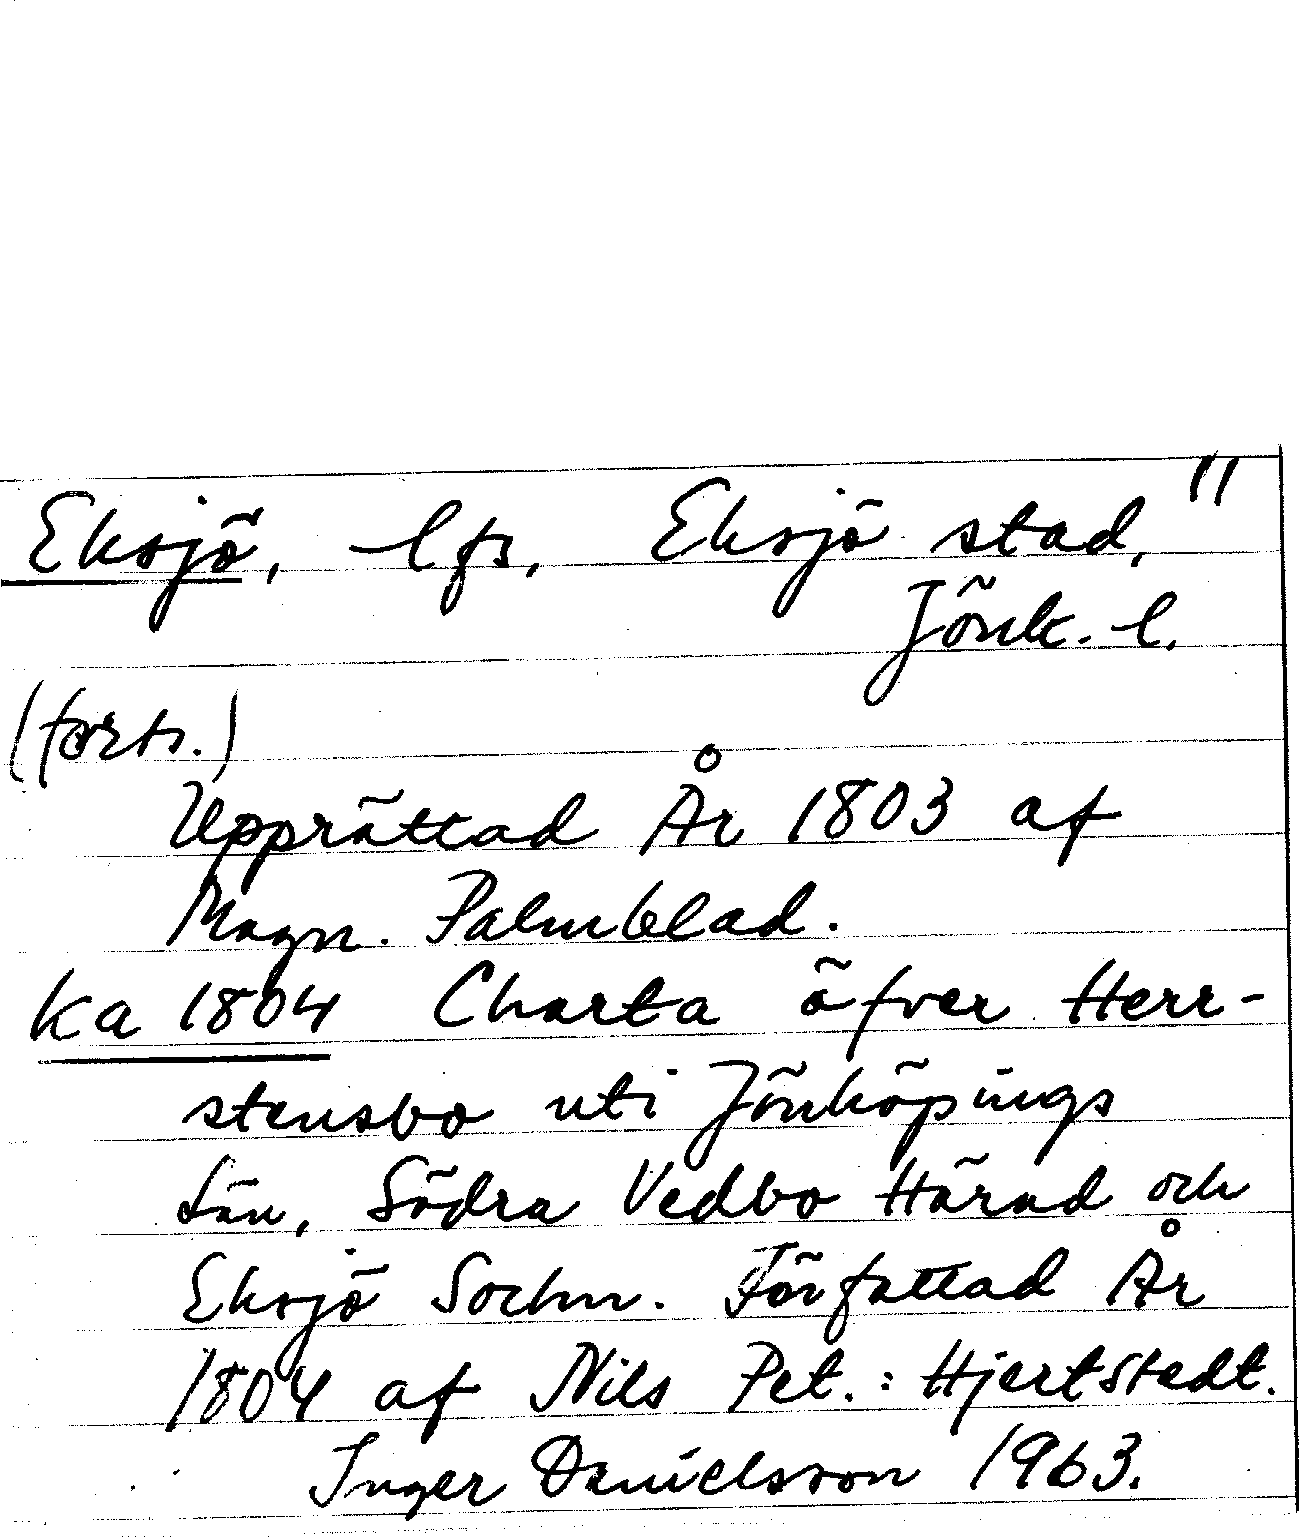 Eksjö, lfs, Eksjö stad, "
Jönk. l.
(forts.)
Upprättad År 1803 af
Magn. Palmblad.
Ka 1804 Charta öfver Herr-
stensbo uti Jönköpings
Län, Södra Vedbo Härad och
Eksjö Sochn. Författad År
1804 af Nils Pet.: Hjertstedt.
Inger Danielsson 1963.